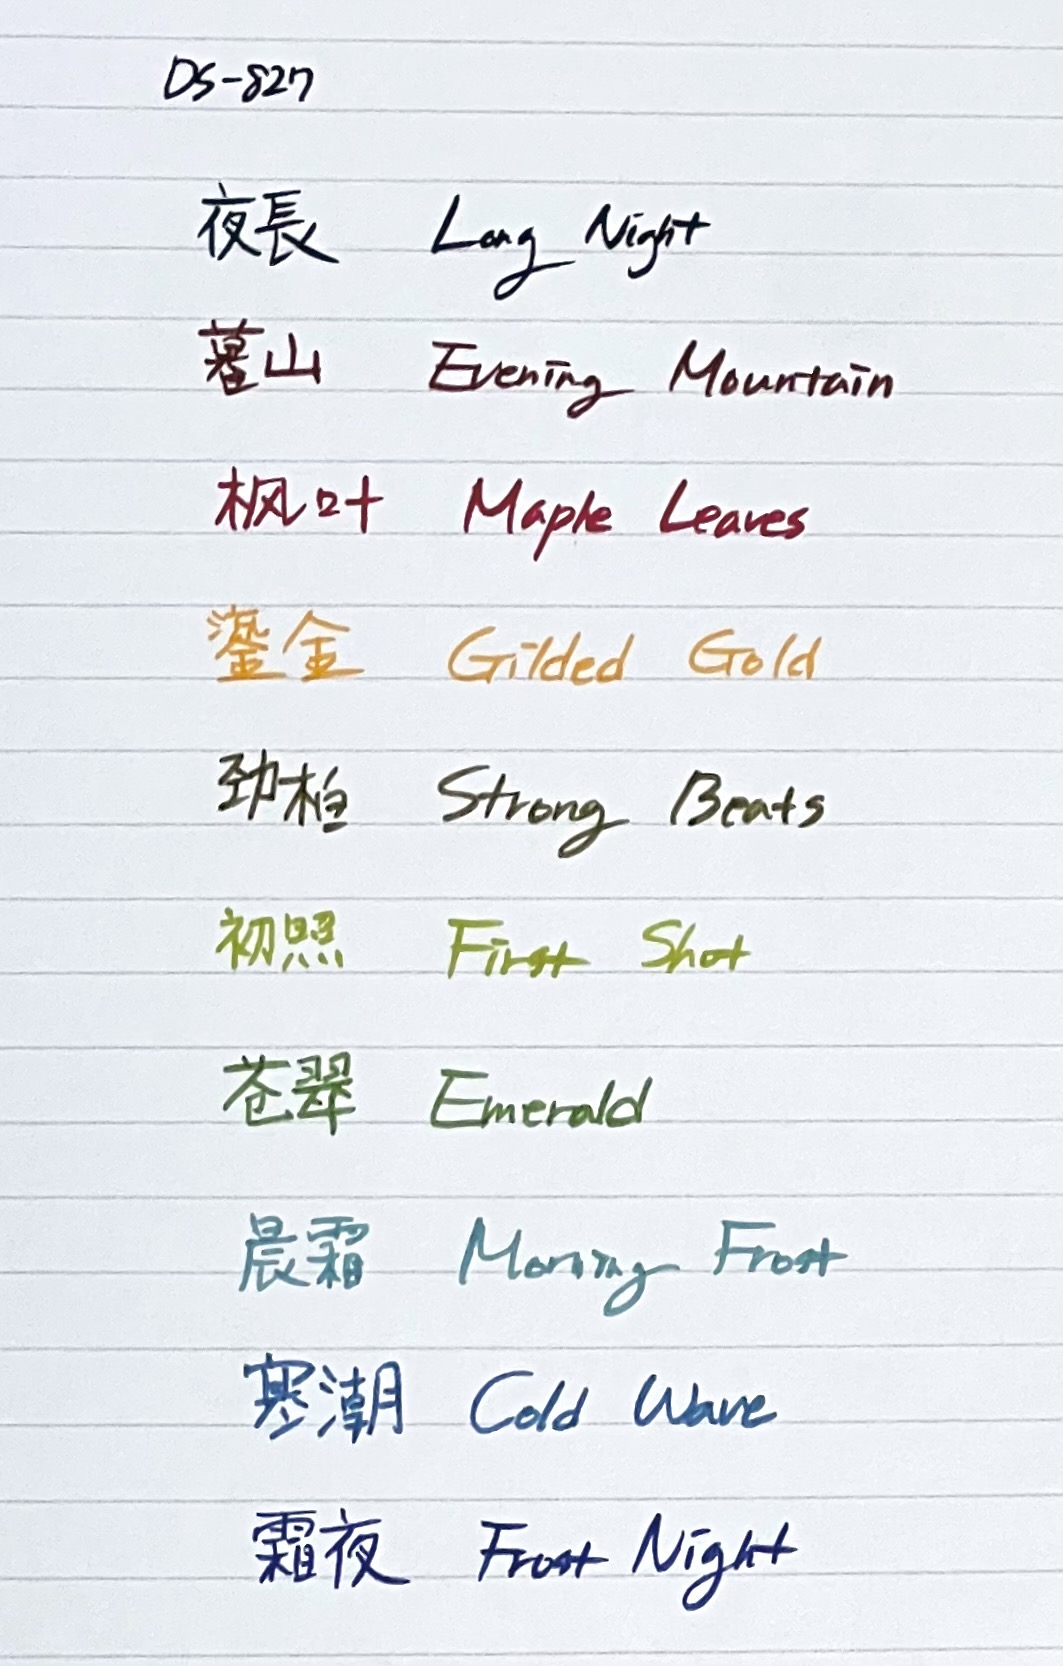 DS-827
夜長 Long Night
暮山 Evening Mountain
枫叶 Maple Leaves
鎏金 Gilded Gold
劲柏 Strong Beats
初照 First Shot
苍翠 Emerald
晨霜 Morning Frost
寒潮 Cold Wave
霜夜 Frost Night